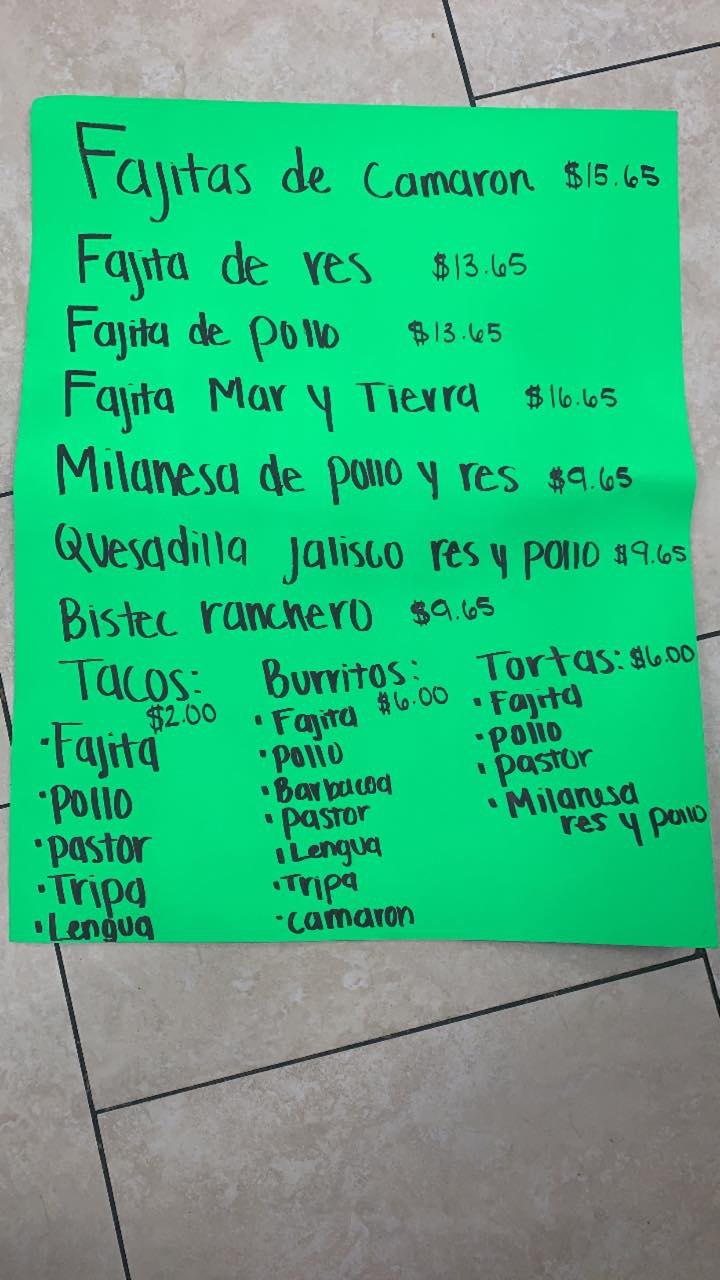 Fajitas de Camaron $15.65
Fajita de res $13.65
Fajita de pollo $13.65
Fajita Mar y Tierra $16.65
Milanesa de pollo y res $9.65
Quesadilla jalisco res y pollo $9.65
Bistec ranchero $9.65
Tacos:
$2.00
· Fajita
· Pollo
· pastor
· Tripa
· Lengua
Burritos:
$6.00
· Fajita
· pollo
· Barbacoa
· pastor
· Lengua
· Tripa
· camaron
Tortas: $6.00
· Fajita
· pollo
· pastor
· Milanesa
res y pollo